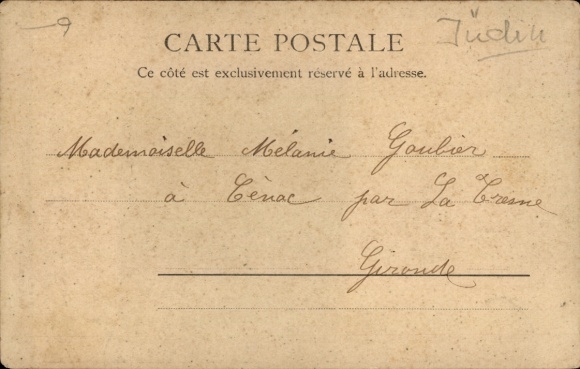 —9
Jüdin
CARTE POSTALE
Ce côté est exclusivement réservé à l'adresse.
Mademoiselle Mélanie Goubier
à Cénac par La Tresne
Gironde